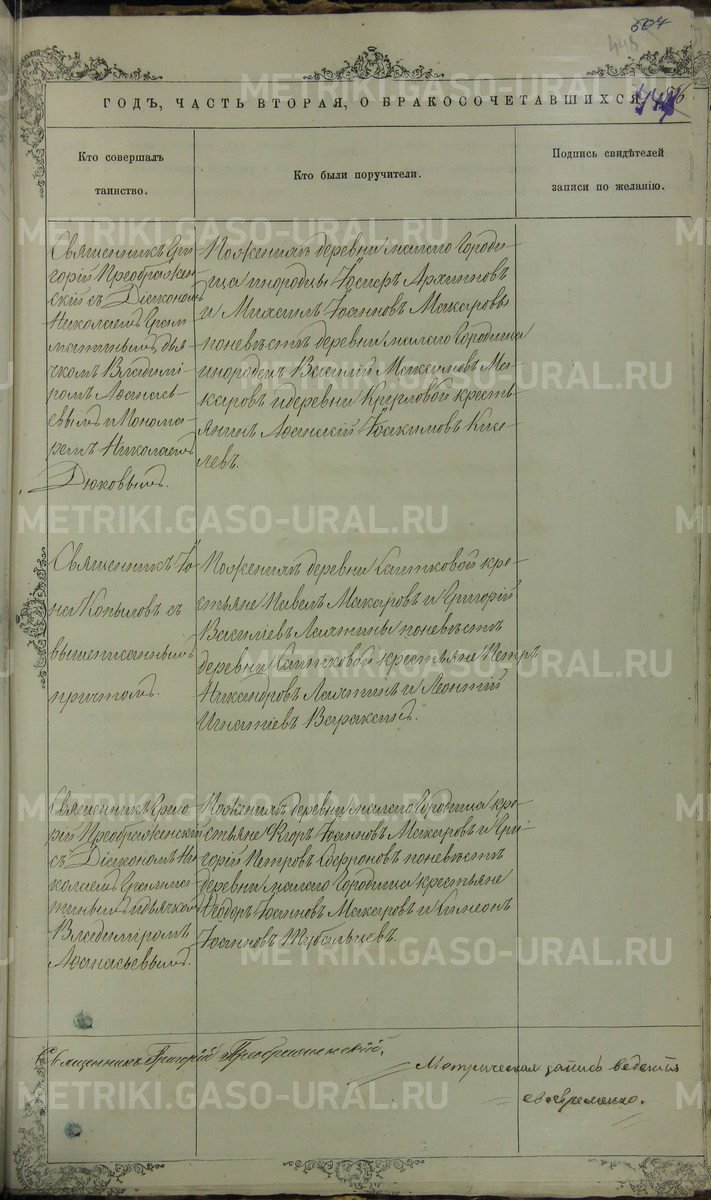 504
448
ГОДЪ, ЧАСТЬ ВТОРАЯ, О БРАКОСОЧЕТАВШИХСЯ,
Кто совершалъ
таинство.
Кто были поручители.
Подпись свидѣтелей
записи по желанію.
Священникъ Гри-
горій Преображен-
скій съ Діакономъ
Николаемъ
дья-
чкомъ Владимі-
ромъ Аѳанась-
евымъ и Понома-
ремъ Николаемъ
Дюковымъ.
По женихѣ деревни малаго Городи-
ща инородцы Егоръ Архиповъ
и Михаилъ Іоанновъ Макаровы
по невѣстѣ деревни малаго Городища
инородецъ Василій Макаровъ
и деревни Кругловой кресть-
янинъ Аѳанасій Іоакимовъ Кисе-
левъ.
Священникъ Іо-
на Копыловъ съ
вышеписаннымъ
причтомъ.
По женихѣ деревни кре-
стьяне Павелъ Макаровъ и Григорій
Василіевъ по невѣстѣ
деревни крестьяне Петръ
Никандровъ и Леонтій
Игнатіевъ Варакинъ.
Священникъ Григо-
рій Преображенскій
съ Діакономъ Ни-
колаемъ
и дьячкомъ
Владиміромъ
Аѳанасьевымъ.
По женихѣ деревни малаго Городища кре-
стьяне Егоръ Іоанновъ Макаровъ и Гри-
горій Петровъ Софроновъ по невѣстѣ
деревни малаго Городища крестьяне
Ѳеодоръ Іоанновъ Макаровъ и Симеонъ
Іоанновъ
Священникъ Григорій Преображенскій.
Метрическая запись ведется
своевременно.
METRIKI.GASO-URAL.RU